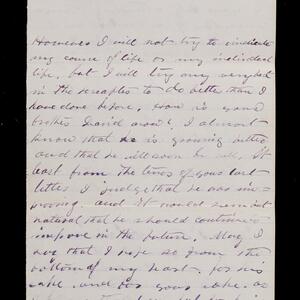 However I will not try to vindicate
my course of life or my individual
life, but I will try my very best
in the hereafter to do better than I
have done before. How is your
brother David now? I almost
know that he is growing better
and that he will soon be well. At
least from the tenor of your last
letter I judge that he was im-
proving, and it would seem but
natural that he should continue to
improve in the future. May I
say that I hope so from the
bottom of my heart, for his
sake, and for your sake, as